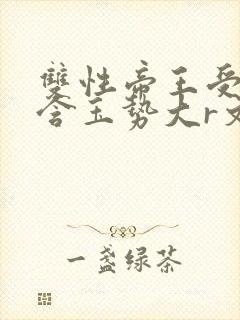 雙性帝王受
含玉势大r文
一盏绿茶